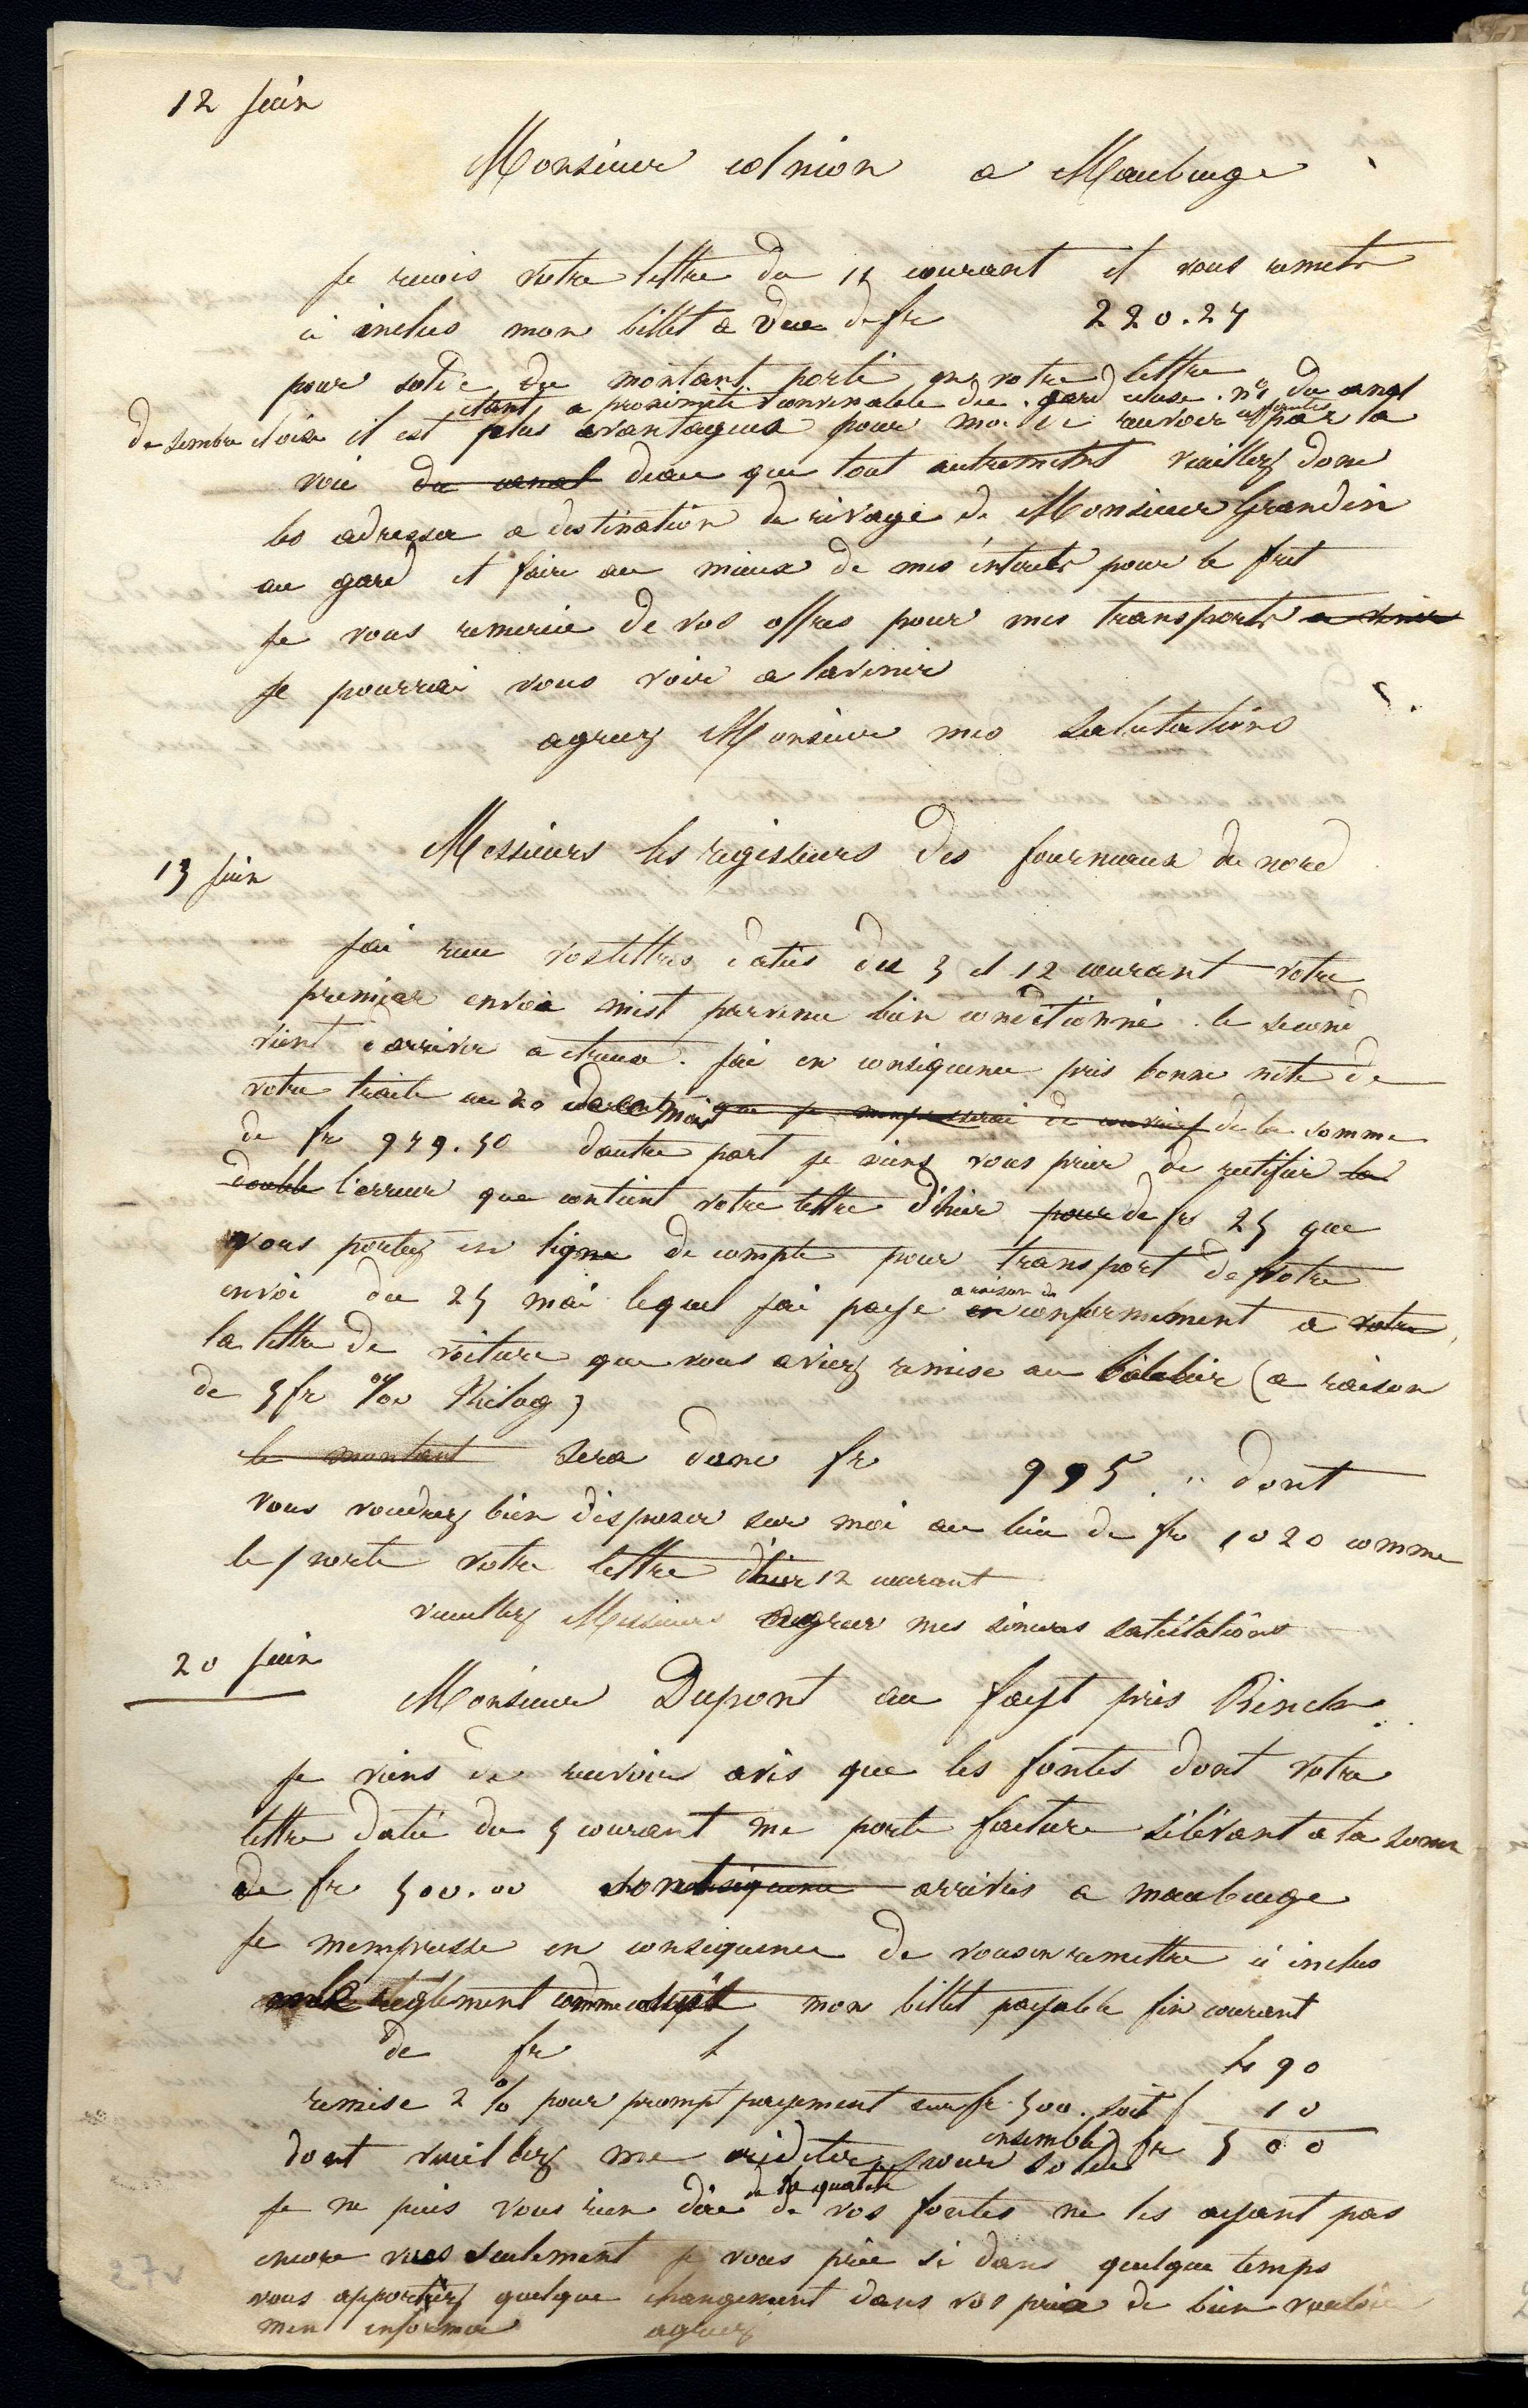 12 juin
Monsieur a Maubeuge
Je recois votre lettre du 12 courant et vous remets
ci inclus mon billet a vue de fr 220.27
pour solde du montant porté en votre lettre
etant a proximité convenable du gard du canal
de sembre et oise il est plus avantageux pour moi de recevoir par la
voie du canal deau que tout autrement veuillez donc
les adresser a destination du rivage de Monsieur Grandin
au gard et faire au mieux de mes interets pour le fret
Je vous remercie de vos offres pour mes transports a venir
Je pourrai vous voir a lavenir
agreez Monsieur mes Salutations
13 juin
Messieurs les regisseurs des fourneaux du nord
Jai recu vos lettres datées du 5 et 12 courant votre
premier envoi mest parvenu bien conditionné. le second
vient darriver a . Jai en consequence pris bonne note de
votre traite au 20 mois que je mempresserai de de la somme
de fr 979.50 dautre part je viens vous prier de rectifier la
double l'erreur que contient votre lettre d'hier pour de fr 25 que
vous portez en ligne de compte pour transport de votre
a raison de
envoi du 25 mai lequel jai payé en conformement a votre
la lettre de voiture que vous aviez remise au batelier (a raison
de 5 fr %00 Kilog)
le montant sera donc fr 995 .. dont
vous voudrez bien disposer sur moi au lieu de fr 1020 comme
le porte votre lettre d'hier 12 courant
veuillez Messieurs agreer mes sinceres salutations
20 juin
Monsieur Dupont au fayt près Binche
Je viens de recevoir avis que les fontes dont votre
lettre datée du 5 courant me porte facture s'élévant a la somme
de fr 500.00 sont arrivées a maubeuge
Je mempresse en consequence de vous en remettre ci inclus
le reglement comme suit mon billet payable fin courant
de fr 490
remise 2 % pour prompt payement sur fr 500. soit f 10
ensemble fr 500
dont veuillez me créditer pour solde
de la qualité
Je ne puis vous rien dire de vos fontes ne les ayant pas
encore vues seulement je vous prie si dans quelque temps
vous apportiez quelque changement dans vos prix de bien vouloir
men informer agreez
27v